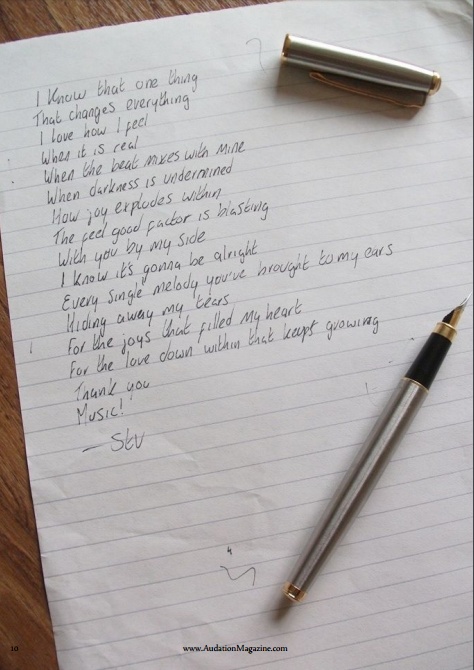 I know that one thing
That changes everything
I love how I feel
When it is real
When the beat mixes with mine
When darkness is undermined
How joy explodes within
The feel good factor is blasting
With you by my side
I know it's gonna be alright
Every single melody you've brought to my ears
Hiding away my tears
For the joys that filled my heart
For the love down within that kept growing
Thank you
Music!
— Stv
10
www.AudationMagazine.com